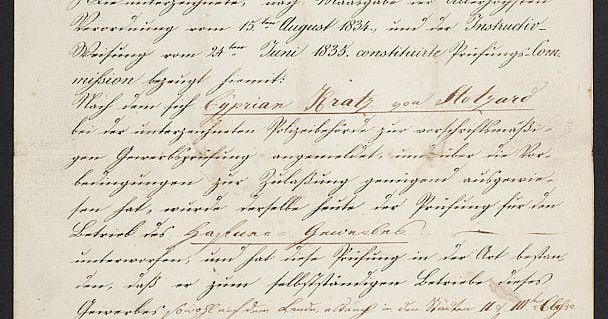 Die unterzeichnete, nach Maasgabe der Allerhöchsten
Verordnung vom 15.ten August 1834., und der Instructiv-
Weisung vom 24ten Juni 1835. constituirte Prüfungs-Com-
mission bezeugt hiemit:
Nach dem sich Cyprian Kratz von
bei der unterzeichneten Polizeibehörde zur vorschriftsmäßi-
gen Gewerbsprüfung angemeldet, und über die Vor-
bedingungen zur Zulaßung genügend ausgewie-
sen hat, wurde derselbe heute der Prüfung für den
Betrieb des Hafner-Gewerbes
unterworfen, und hat diese Prüfung in der Art bestan-
den, daß er zum selbstständigen Betriebe dieses
Gewerbes sowohl auf dem Lande, als auch in den Städten II. u. III. Classe